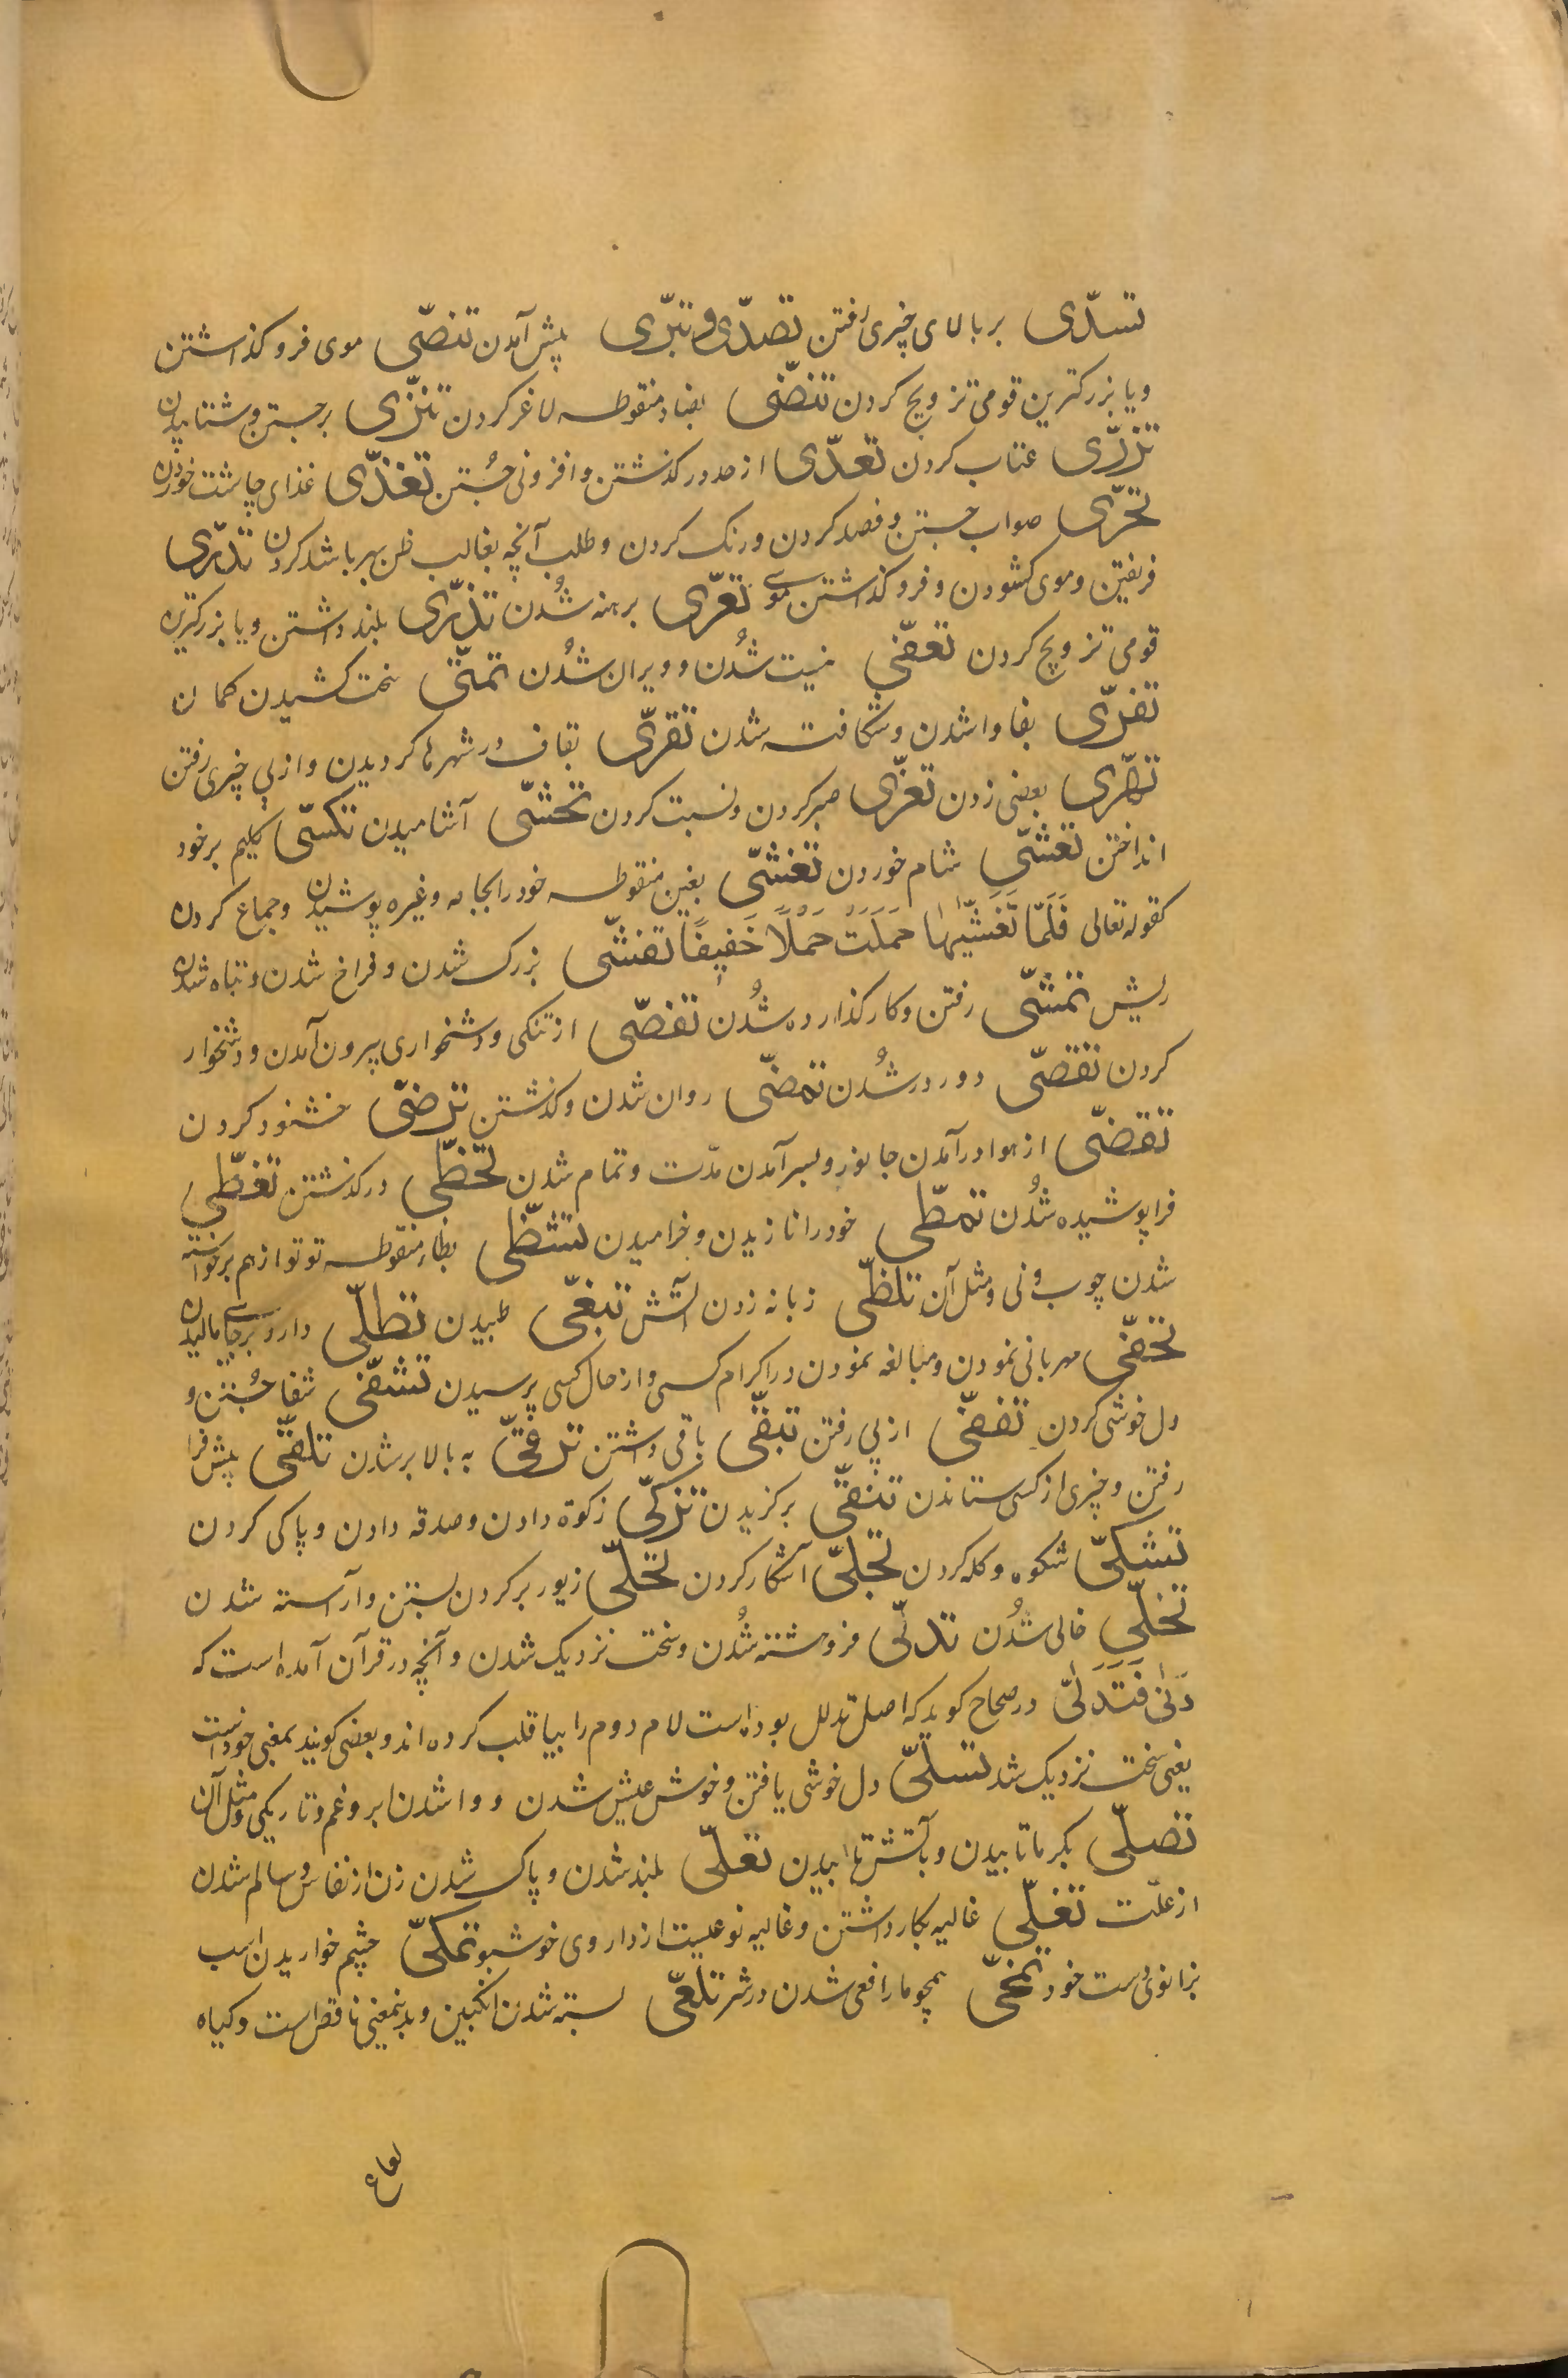 تسدّی بر بالای چیزی رفتن تصدّی و تبرّی پیش آمدن تنصّی موی فرو کذاشتن
و یا بزرکترین قومی تزویج کردن تنضّی بضاد منقوطه لاغر کردن تنزّی برجستن و شتابیدن
تزرّی عتاب کردن تعدّی از حد درکذشتن و افزونی جُستن تغذّی غذای چاشت خوردن
تحرّی صواب جستن و قصد کردن و درنک کردن و طلب آنچه بغالب ظن بهر باشد کردن تدرّی
فریفتن و موی کشودن و فرو کذاشتن موی تعرّی برهنه شُدن تذرّی بلند داشتن و یا بزرکترین
قومی تزویج کردن تعفّی نیست شُدن و ویران شُدن تمتّی سخت کشیدن کمان
تفرّی بفا وا شدن و شکافته شدن تقرّی بقاف در شهرها کردیدن و از پی چیزی رفتن
بعضی زدن تعزّی صبر کردن و نسبت کردن تحسّی آشامیدن تکسّی کلیم بر خود
انداختن تعشّی شام خوردن تغشّی بغین منقوطه خود را بجامه و غیره پوشیدن و جماع کردن
کقوله تعالی فَلَمَّا تَغَشَّیٰهَا حَمَلَتْ حَمْلًا خَفِیفًا تفشّی بزرک شدن و فراخ شدن و تباه شدن
ریش تمشّی رفتن و کار کذارده شُدن تفصّی از تنکی و دشخواری بیرون آمدن و دشخوار
کردن تقصّی دور در شُدن تمضّی روان شدن و کذشتن ترضّی خشنود کردن
تقضّی از هوا درآمدن جانور و بسر آمدن مدّت و تمام شدن تخطّی درکذشتن تغطّی
فرا پوشیده شُدن تمطّی خود را نازیدن و خرامیدن تشظّی بظاء منقوطه تو تو از هم برخواسته
شدن چوب و نی و مثل آن تلظّی زبانه زدن آتش تبغّی طبیدن تطلّی دارو بر جای مالیدن
تحفّی مهربانی نمودن و مبالغه نمودن در اکرام کسی و از حال کسی پرسیدن تشفّی شفا جُستن و
دل خوشی کردن تقفّی از پی رفتن تبقّی باقی داشتن ترقّی به بالا بر شدن تلقّی پیش فرا
رفتن و چیزی از کسی ستاندن تنقّی برکزیدن تزکّی زکوة دادن و صدقه دادن و پاکی کردن
تشکّی شکوه و کله کردن تجلّی آشکار کردن تحلّی زیور بر کردن بستن و آراسته شدن
تخلّی خالی شُدن تدلّی فروهشته شُدن و سخت نزدیک شدن و آنچه در قرآن آمده است که
دَنیٰ فَتَدَلّیٰ در صحاح کوید که اصل تدلل بوده است لام دوم را بیا قلب کرده اند و بعضی کویند بمعنی خود است
یعنی سخت نزدیک شد تسلّی دل خوشی یافتن و خوش عیش شدن و وا شدن ابر و غم و تاریکی و مثل آن
تصلّی بکرما تابیدن و بآتش تابیدن تعلّی بلند شدن و پاک شدن زن از نفاس و سالم شدن
از علّت تغلّی غالیه بکار داشتن و غالیه نوعیست از داروی خوشبو تمکّی چشم خواریدن اسب
بزانوی دست خود همچو مار افعی شدن در شر تلعّی بسته شدن انکبین و بدینمعنی ناقص است و کیاه
لعاع